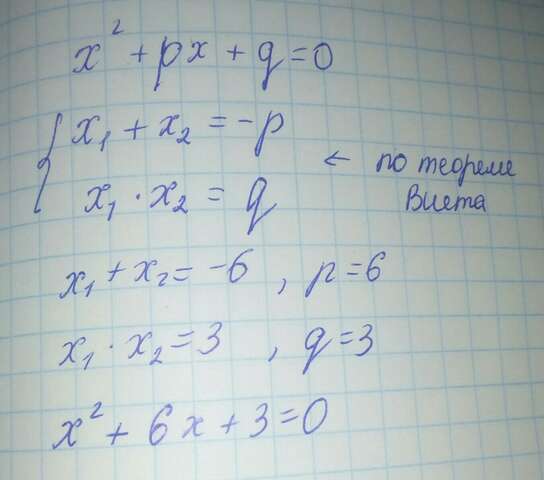 x² + px + q = 0
{ x₁ + x₂ = -p
x₁ · x₂ = q
← по теореме
Виета
x₁ + x₂ = -6 , p = 6
x₁ · x₂ = 3 , q = 3
x² + 6x + 3 = 0